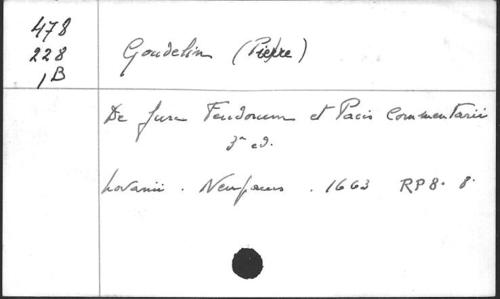 478
228
1B
Goudelin (Pierre)
De Jure Feudorum et Pacis Commentarii
3a ed.
Lovanii . Nempaeus . 1663 RP 8. 8.